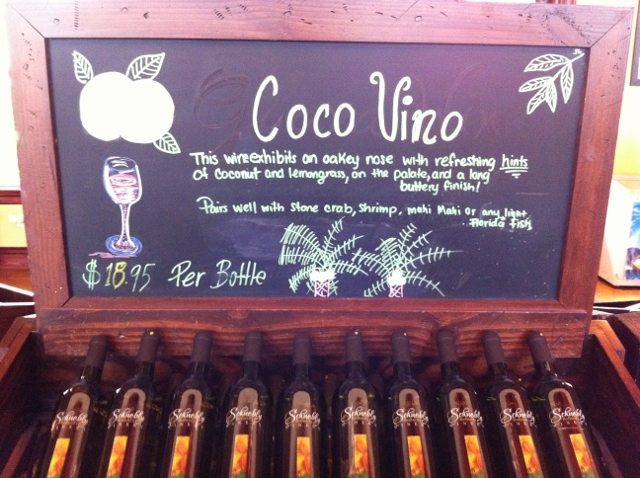 Coco Vino
This wine exhibits an oakey nose with refreshing hints
of Coconut and lemongrass, on the palate, and a long
buttery finish!
Pairs well with Stone crab, shrimp, mahi Mahi or any light
Florida fish
$18.95 Per Bottle
Schnebly
Schnebly
Schnebly
Schnebly
Schnebly
Schnebly
Schnebly
Schnebly
Schnebly
Schnebly